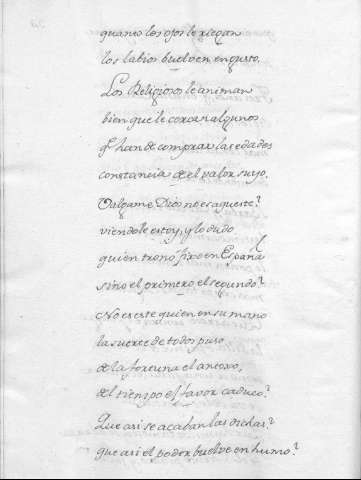 quanto los ojos le riegan
los labios buelven en gusto.
Los Religiosos le animan
bien que le cercan algunos
q han de comprar las edades
constancia de el valor suyo.
Valgame Dios no es aqueste?
viendole estoy, y lo dudo
quien trono fixo en España
sino el primero, el segundo?
No es este quien en su mano
la suerte de todos puso
de la fortuna el anexo,
del tiempo el favor caduco?
Que asi se acaban las dichas?
que asi el poder buelve en humo?